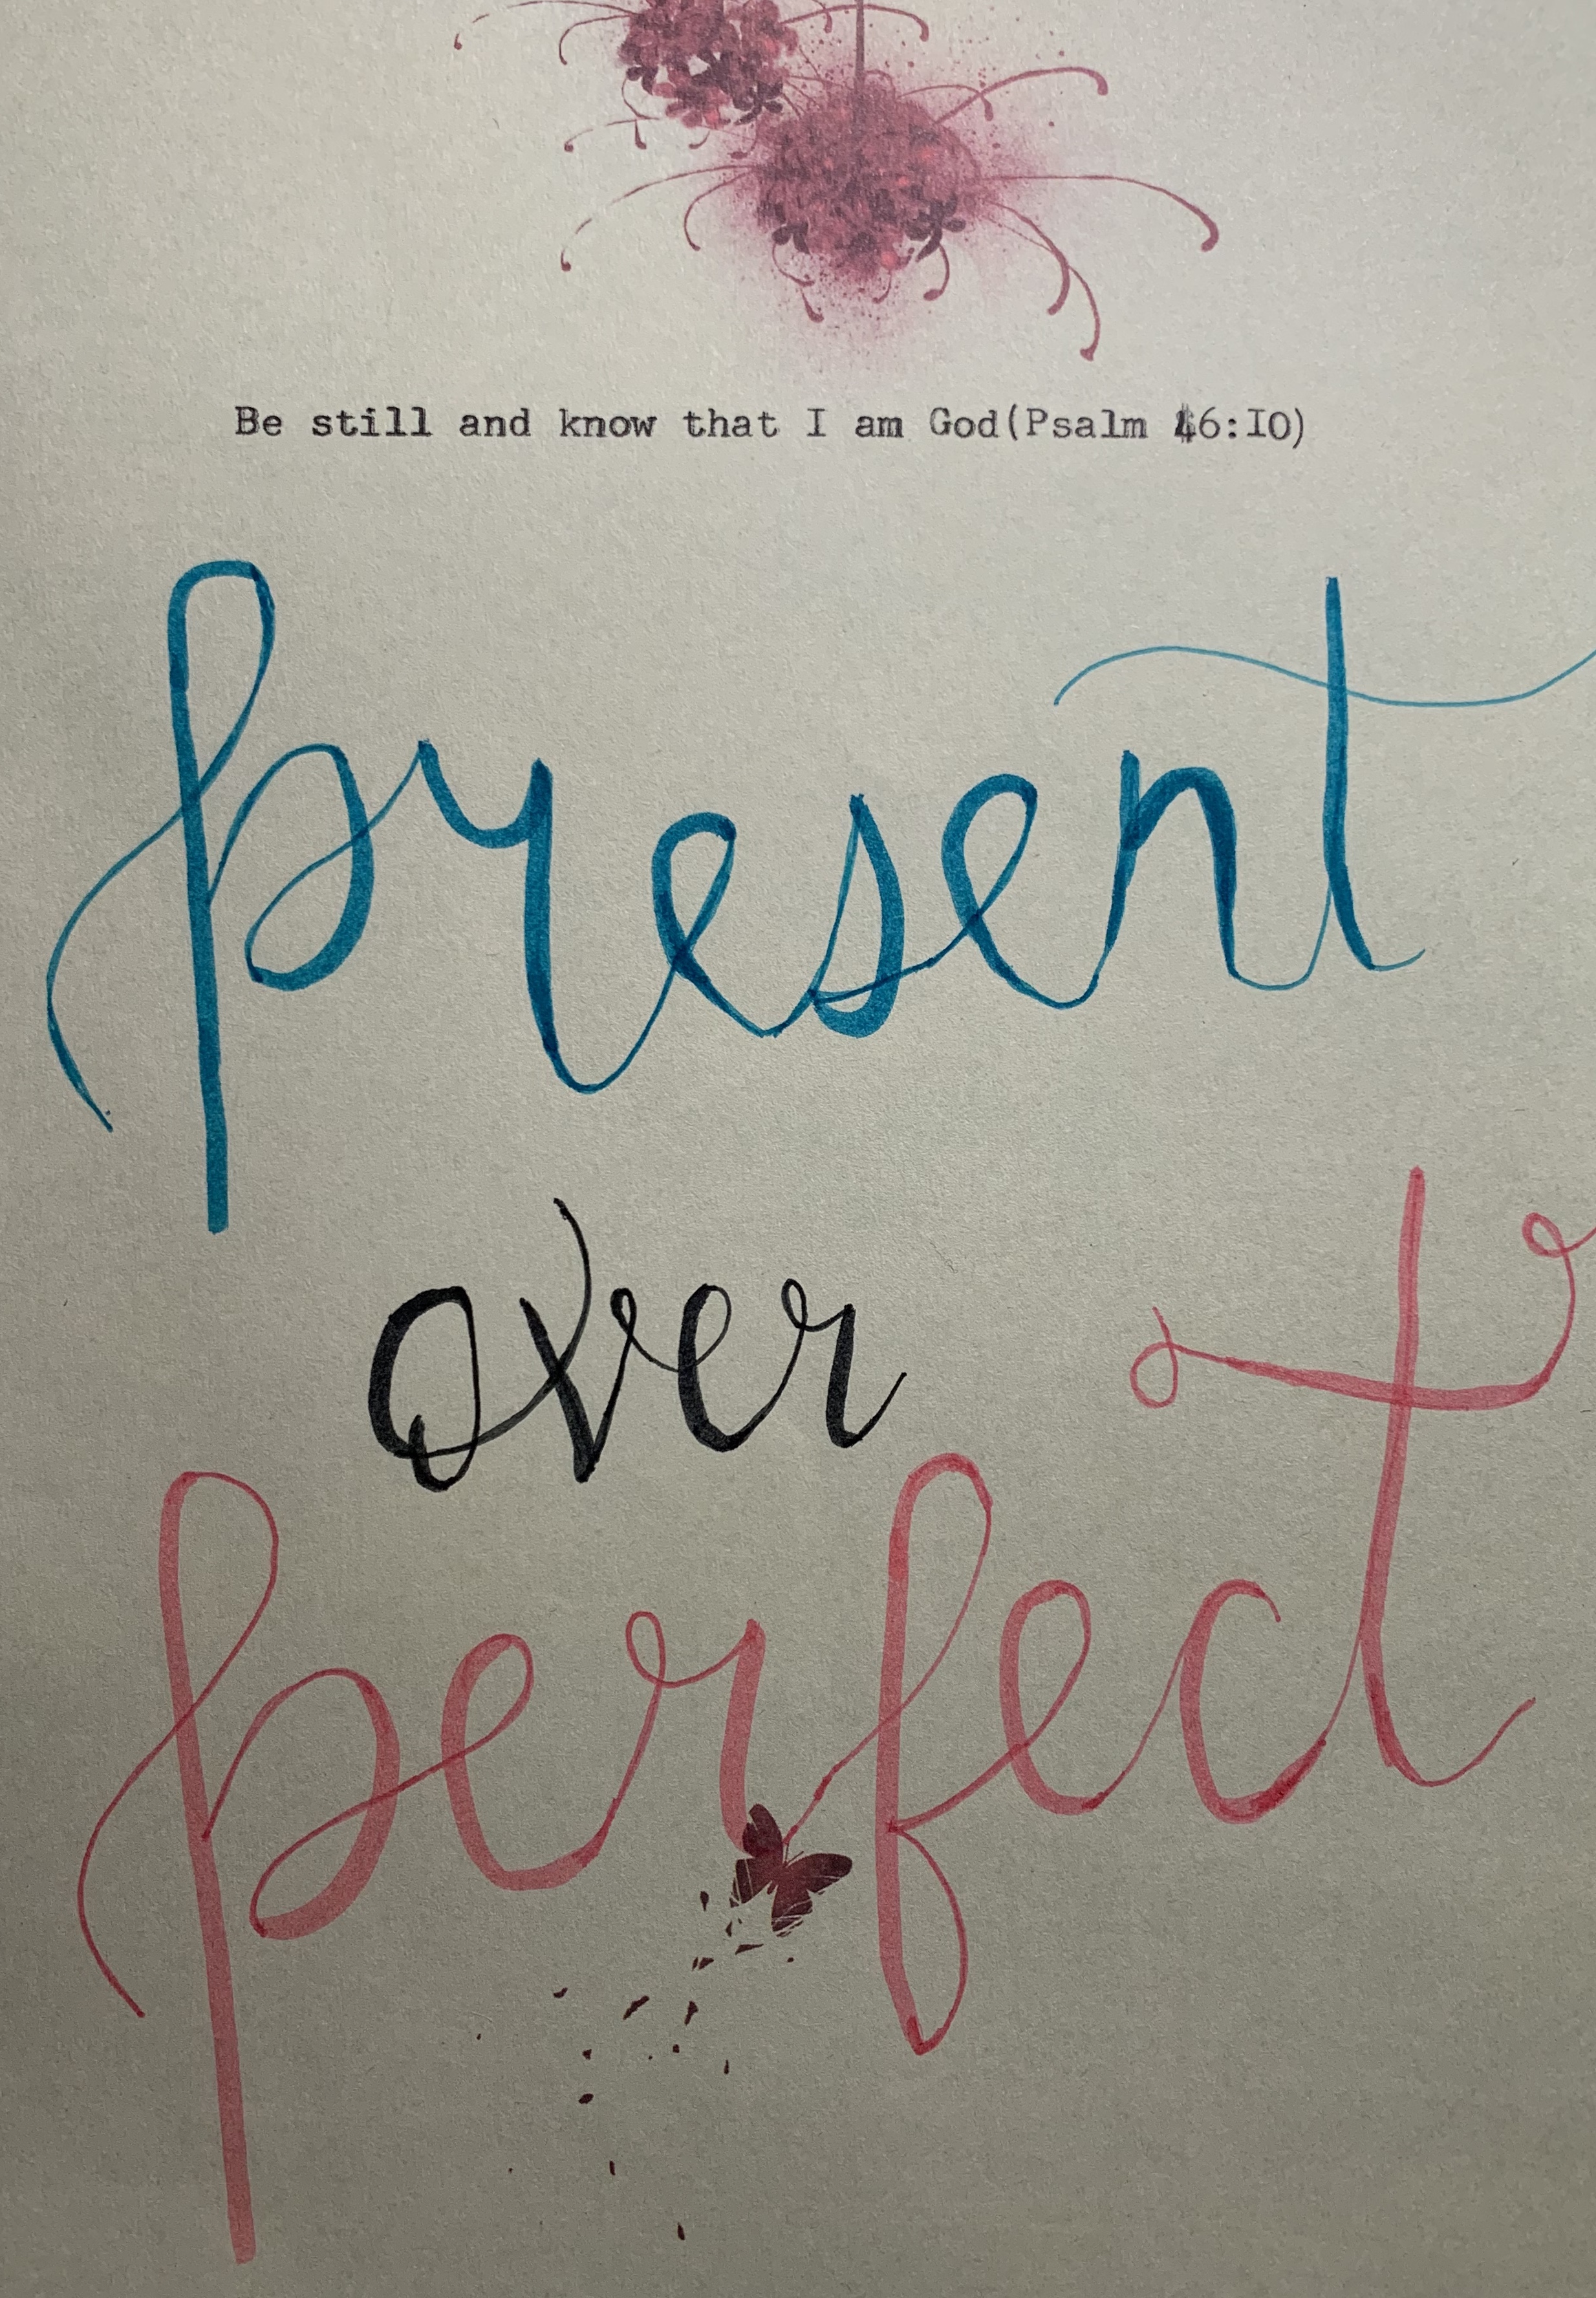 Be still and know that I am God(Psalm 46:IO)
present
over
perfect